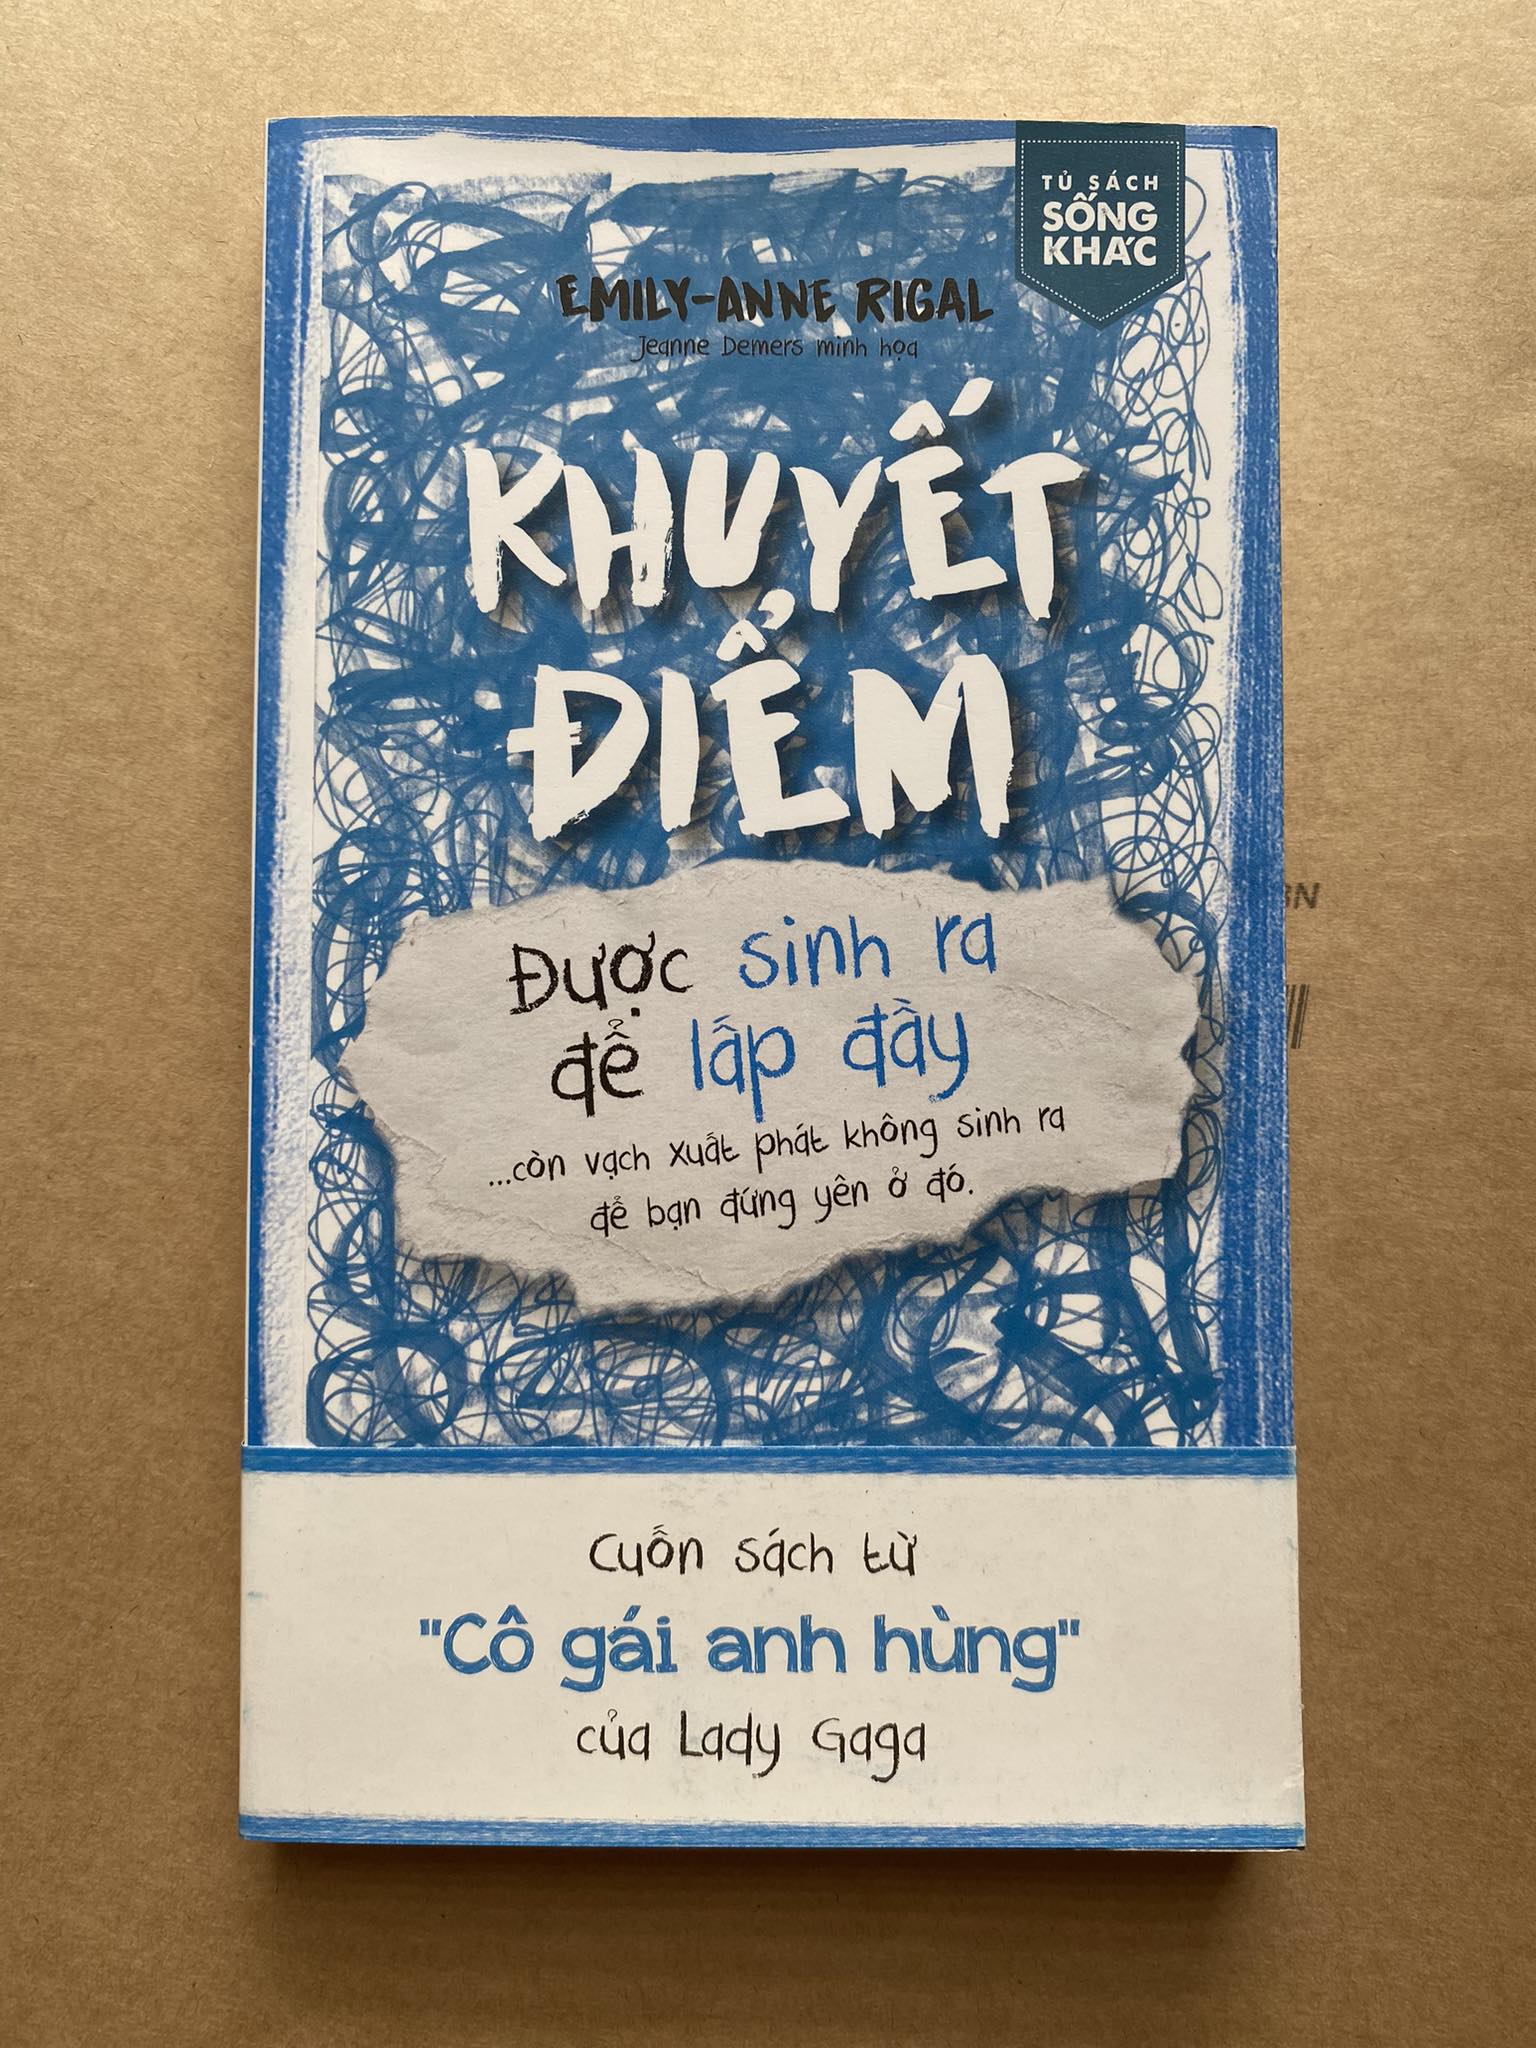 TỦ SÁCH
SỐNG
KHÁC
EMILY-ANNE RIGAL
Jeanne Demers minh họa
KHUYẾT
ĐIỂM
Được sinh ra
để lấp đầy
...còn vạch xuất phát không sinh ra
để bạn đứng yên ở đó.
Cuốn sách từ
"Cô gái anh hùng"
của Lady Gaga